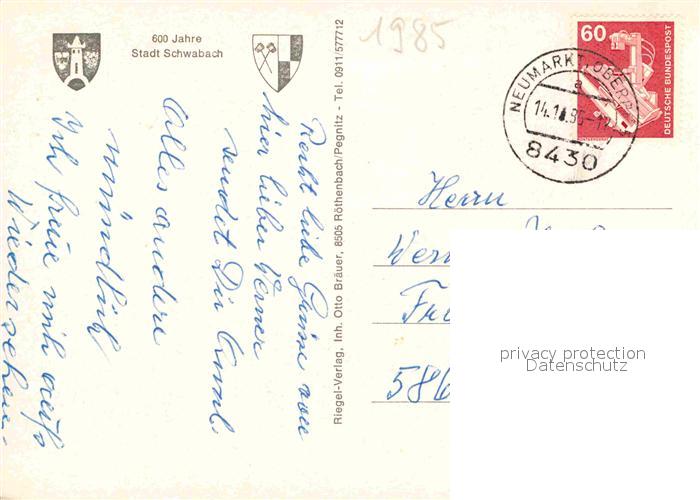 600 Jahre
Stadt Schwabach
1985
60
DEUTSCHE BUNDESPOST
NEUMARKT, OBERPF
a
8430
Recht liebe Grüsse von
hier lieber Werner
sendet Dir
Alles andere
mündlich
Ich freue mich aufs
Wiedersehen.
Riegel-Verlag, Inh. Otto Bräuer, 8505 Röthenbach/Pegnitz - Tel. 0911/577712
Herrn
Wer
Fr
586
privacy protection
Datenschutz